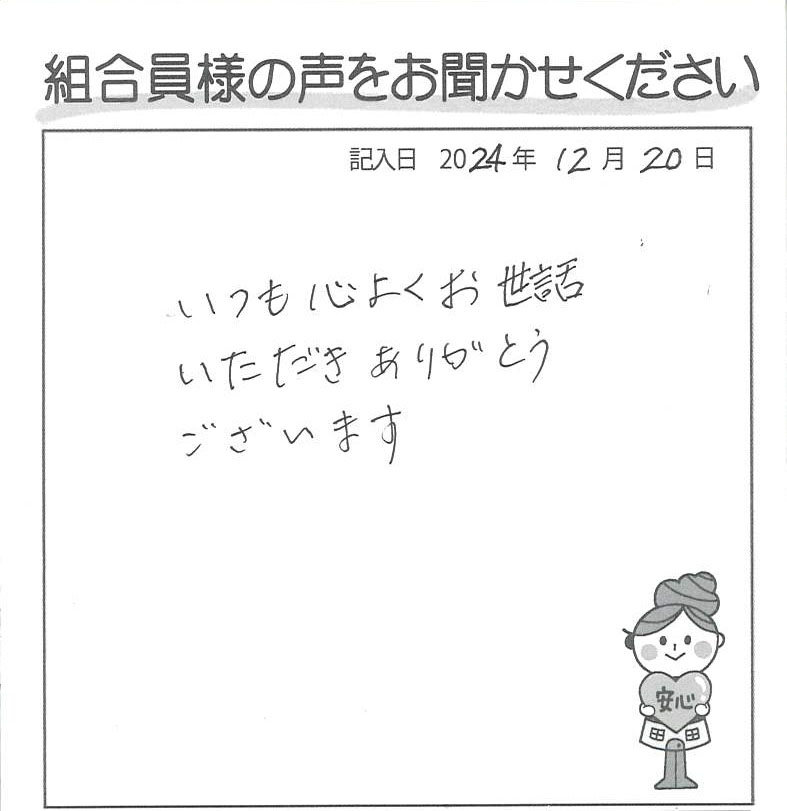 組合員様の声をお聞かせください
記入日 2024年 12月 20日
いつも心よくお世話
いただきありがとう
ございます
安心